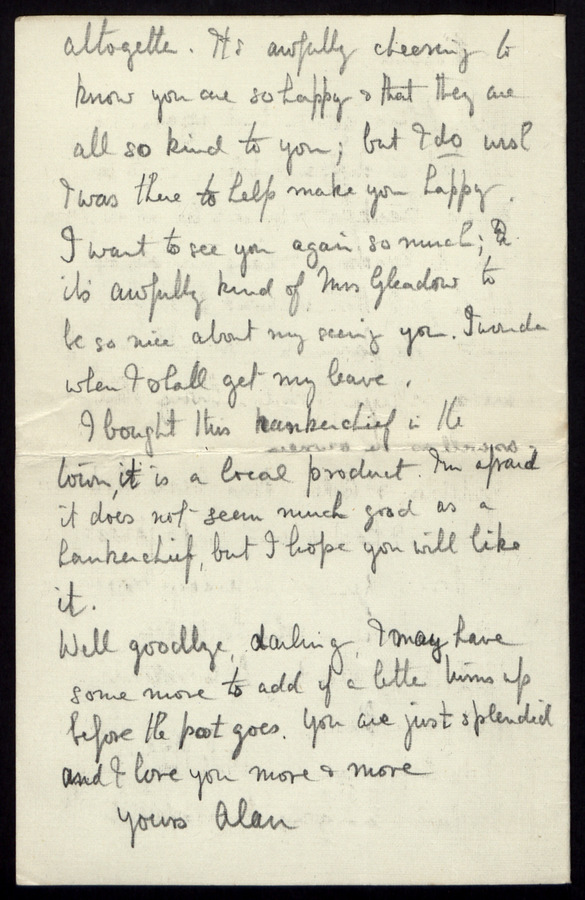 altogether. It's awfully cheering to
know you are so happy & that they are
all so kind to you; but I do wish
I was there to help make you happy.
I want to see you again so much; &
its awfully kind of Mrs Gleadow to
be so nice about my seeing you. I wonder
when I shall get my leave.
I bought this hankerchief in the
town, it is a local product. I'm afraid
it does not seem much good as a
hankerchief, but I hope you will like
it.
Well goodbye, darling, I may have
some more to add if a letter turns up
before the post goes. You are just splendid
and I love you more & more
yours Alan